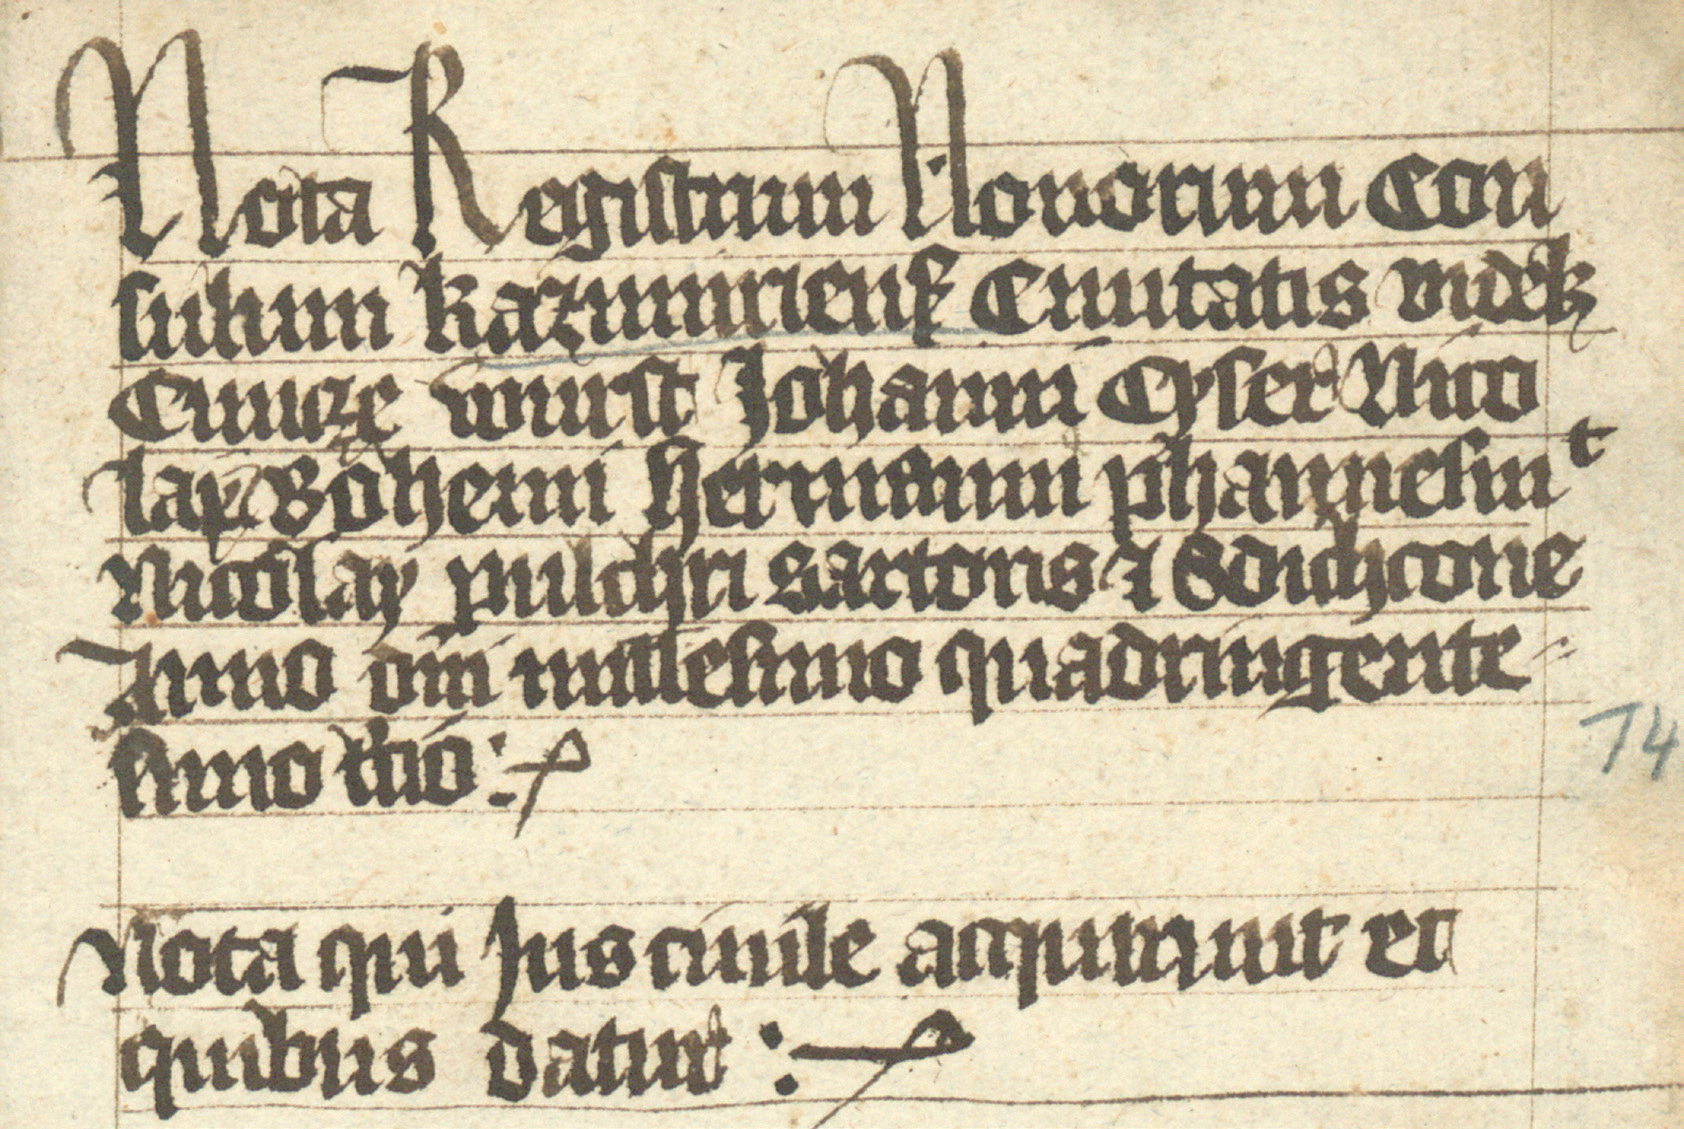 Nota Registrum Nouorum Con
sulum kazimiriensꝭ Ciuitatis videlꝫ
Cuncze wurst Johanni Cyser Nico
lay Bohemi hermanni phannesmt
Nicolay pulchri sartoris ⁊
Anno dni millesimo quadringente=
simo :
74
Nota qui Jus ciuile acquirunt et
quibus datur :